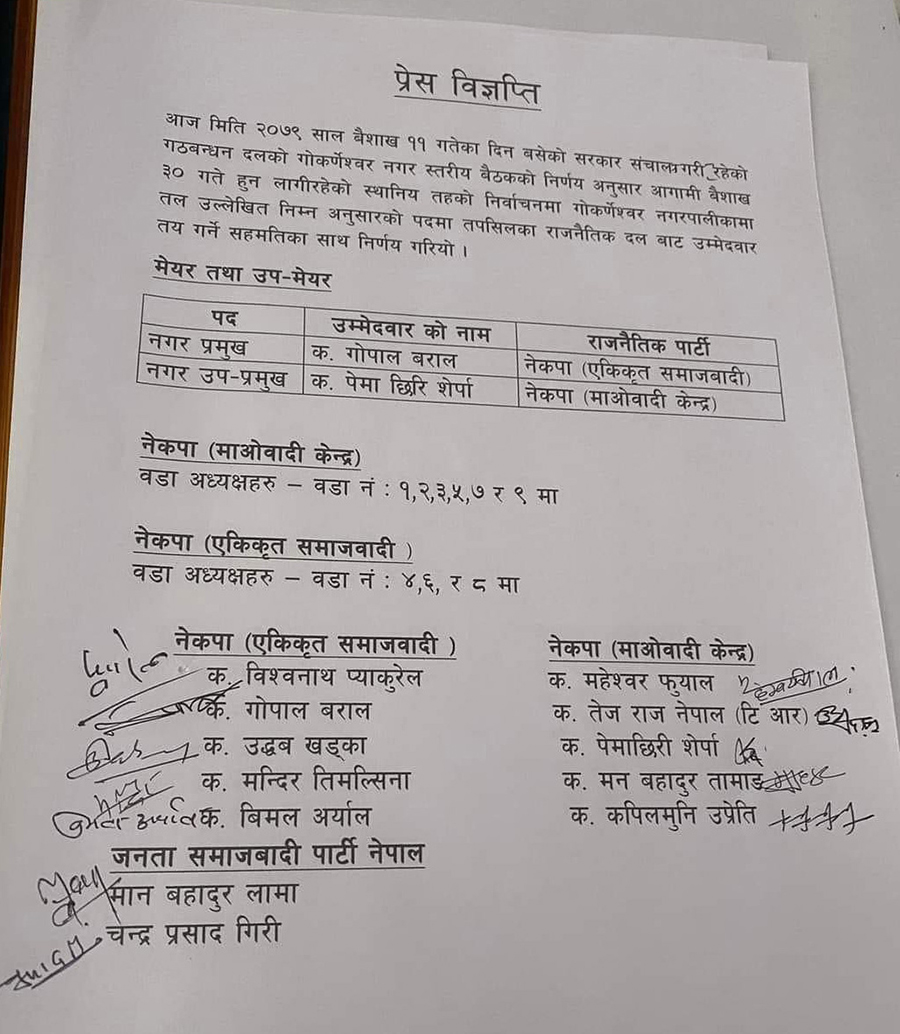 प्रेस विज्ञप्ति
आज मिति २०७९ साल बैशाख ११ गतेका दिन बसेको सरकार संचालन गरी रहेको
गठबन्धन दलको गोकर्णेश्वर नगर स्तरीय बैठकको निर्णय अनुसार आगामी बैशाख
३० गते हुन लागीरहेको स्थानिय तहको निर्वाचनमा गोकर्णेश्वर नगरपालीकामा
तल उल्लेखित निम्न अनुसारको पदमा तपसिलका राजनैतिक दल बाट उम्मेदवार
तय गर्ने सहमतिका साथ निर्णय गरियो ।
मेयर तथा उप-मेयर
पद उम्मेदवार को नाम राजनैतिक पार्टी
नगर प्रमुख क. गोपाल बराल नेकपा (एकिकृत समाजबादी)
नगर उप-प्रमुख क. पेमा छिरि शेर्पा नेकपा (माओवादी केन्द्र)
नेकपा (माओवादी केन्द्र)
वडा अध्यक्षहरु – वडा नं : १,२,३,५,७ र ९ मा
नेकपा (एकिकृत समाजवादी )
वडा अध्यक्षहरु – वडा नं : ४,६, र ८ मा
नेकपा (एकिकृत समाजवादी ) नेकपा (माओवादी केन्द्र)
क. विश्वनाथ प्याकुरेल क. महेश्वर फुयाल
क. गोपाल बराल क. तेज राज नेपाल (टि आर)
क. उद्धब खड्का क. पेमाछिरी शेर्पा
क. मन्दिर तिमल्सिना क. मन बहादुर तामाङ
क. बिमल अर्याल क. कपिलमुनि उप्रेति
जनता समाजबादी पार्टी नेपाल
मान बहादुर लामा
चन्द्र प्रसाद गिरी